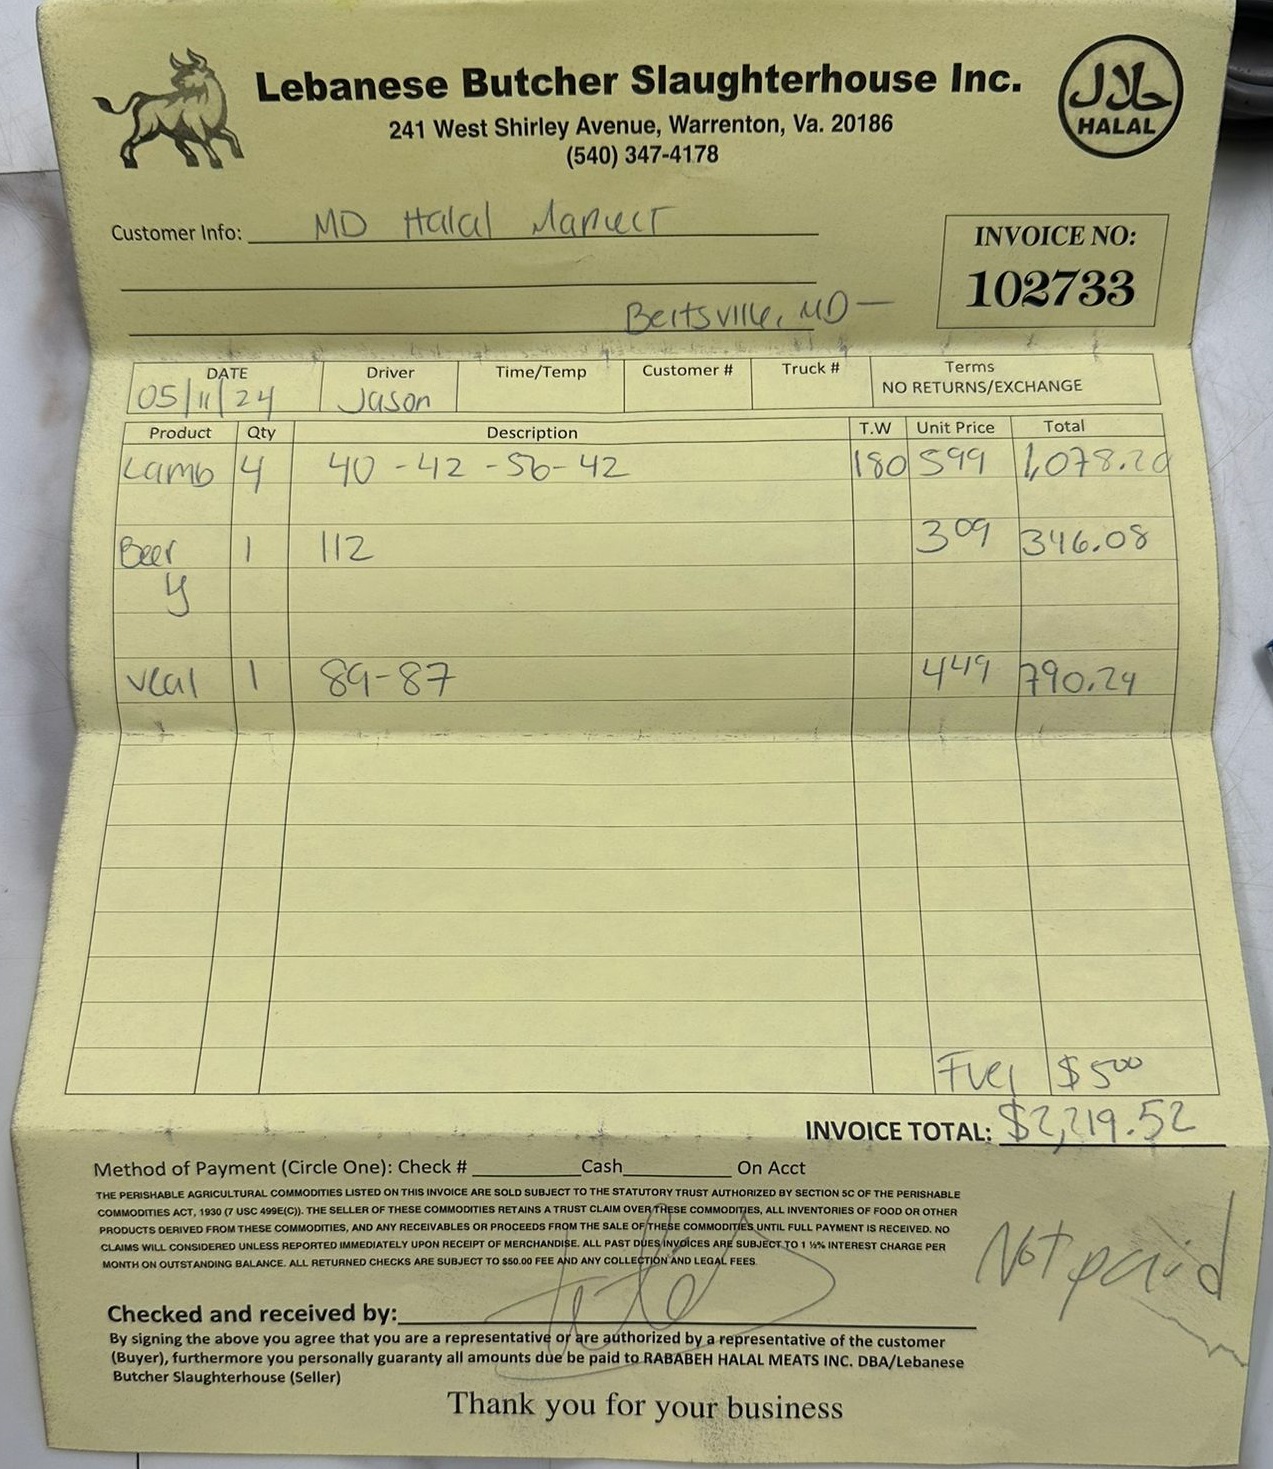 Lebanese Butcher Slaughterhouse Inc.
241 West Shirley Avenue, Warrenton, Va. 20186
(540) 347-4178
حلال
HALAL
Customer Info: MD Halal Market
INVOICE NO:
102733
Beltsville, MD —
DATE Driver Time/Temp Customer # Truck # Terms
05/11/24 Jason NO RETURNS/EXCHANGE
Product Qty Description T.W Unit Price Total
Lamb 4 40 - 42 - 56 - 42 180 599 1,078.20
Beef 1 112 3 09 346.08
y
veal 1 89-87 449 790.24
Fuel $5 00
INVOICE TOTAL: $2,219.52
Method of Payment (Circle One): Check # Cash On Acct
THE PERISHABLE AGRICULTURAL COMMODITIES LISTED ON THIS INVOICE ARE SOLD SUBJECT TO THE STATUTORY TRUST AUTHORIZED BY SECTION 5C OF THE PERISHABLE
COMMODITIES ACT, 1930 (7 USC 499E(C)). THE SELLER OF THESE COMMODITIES RETAINS A TRUST CLAIM OVER THESE COMMODITIES, ALL INVENTORIES OF FOOD OR OTHER
PRODUCTS DERIVED FROM THESE COMMODITIES, AND ANY RECEIVABLES OR PROCEEDS FROM THE SALE OF THESE COMMODITIES UNTIL FULL PAYMENT IS RECEIVED. NO
CLAIMS WILL CONSIDERED UNLESS REPORTED IMMEDIATELY UPON RECEIPT OF MERCHANDISE. ALL PAST DUES INVOICES ARE SUBJECT TO 1 ½% INTEREST CHARGE PER
MONTH ON OUTSTANDING BALANCE. ALL RETURNED CHECKS ARE SUBJECT TO $50.00 FEE AND ANY COLLECTION AND LEGAL FEES.
Not paid
Checked and received by:
By signing the above you agree that you are a representative or are authorized by a representative of the customer
(Buyer), furthermore you personally guaranty all amounts due be paid to RABABEH HALAL MEATS INC. DBA/Lebanese
Butcher Slaughterhouse (Seller)
Thank you for your business